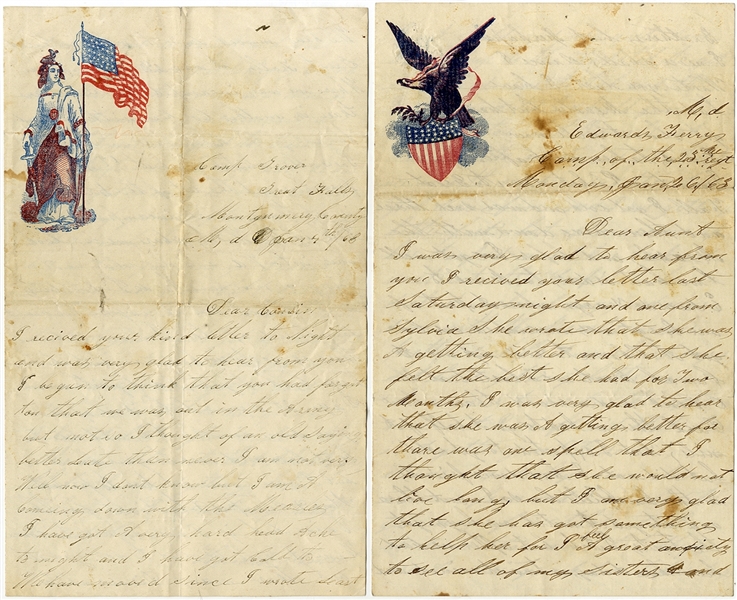 Camp Grover
Great Falls
Montgmery County
M, d Jan 4th / 63
Dear Cousin
I recived your kind letter to Night
and was very glad to hear from you
I began to think that you had forgot
ton that we was out in the Army
but not so I thought of an old saying
better late than never I am not very
Well now I dont know but I am A
Comeing down with the Measles
I have got A very hard head Ache
to night and I have got cold to
We have moved since I wrote last
M, d
Edwards Ferry
Camp, of the 23 Regt
Monday, Jan, 26 / 63
Dear Aunt
I was very glad to hear from
you I recived your letter last
Saturday night and one from
Sylvia She wrote that she was
A getting better and that she
felt the best she had for Two
Months, I was very glad to hear
that she was A getting better for
thare was one spell that I
thought that she would not
live long, but I am very glad
that she has got something
to help her for I A great anxiety
to see all of my Sisters and